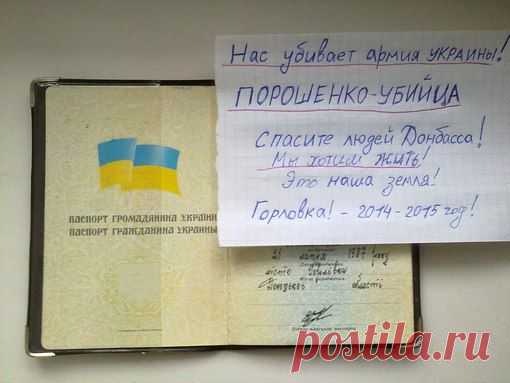 Нас убивает армия УКРАИНЫ!
ПОРОШЕНКО-УБИЙЦА
Спасите людей Донбасса!
Мы хотим жить!
Это наша земля!
Горловка! - 2014-2015 год!
ПАСПОРТ ГРОМАДЯНИНА УКРАЇНИ
ПАСПОРТ ГРАЖДАНИНА УКРАИНЫ
1987 року
місто
область
postila.ru